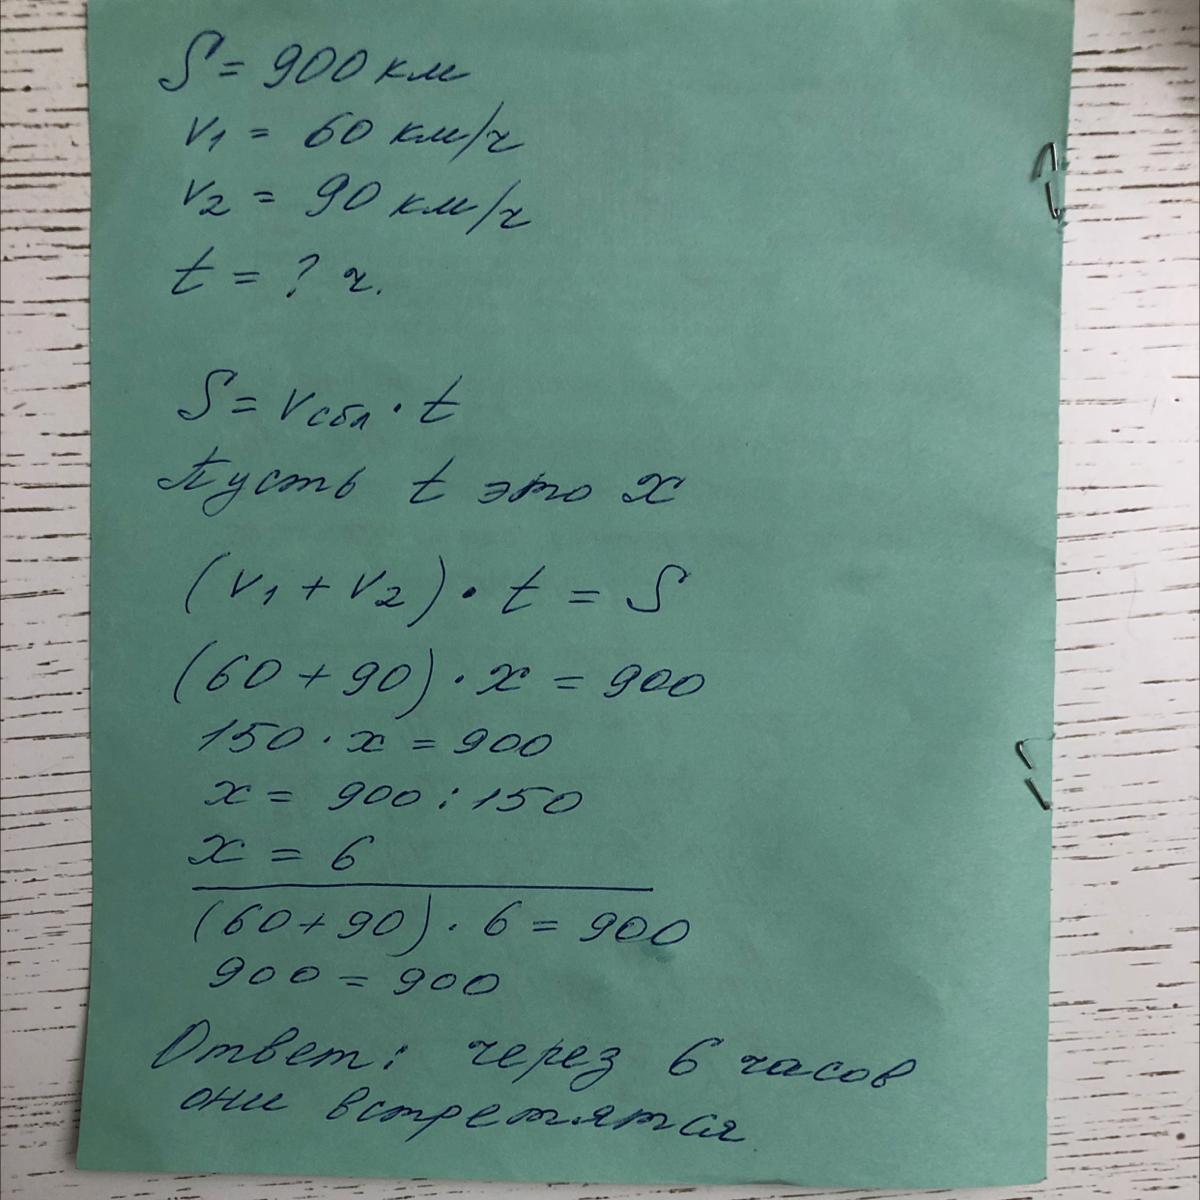 S = 900 км
v1 = 60 км/ч
v2 = 90 км/ч
t = ? ч.
S = vсбл · t
Пусть t это x
(v1 + v2) · t = S
(60 + 90) · x = 900
150 · x = 900
x = 900 : 150
x = 6
(60 + 90) · 6 = 900
900 = 900
Ответ: через 6 часов
они встретятся